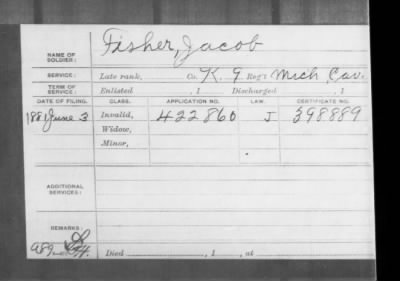 Fisher, Jacob
NAME OF SOLDIER:
SERVICE: Late rank, Co. K, 9 Reg't Mich Cav.
TERM OF SERVICE: Enlisted , 1 Discharged , 1
DATE OF FILING. CLASS. APPLICATION NO. LAW. CERTIFICATE NO.
1881 June 3 Invalid, 422860 J 398889
Widow,
Minor,
ADDITIONAL SERVICES:
REMARKS:
Died , 1 , at